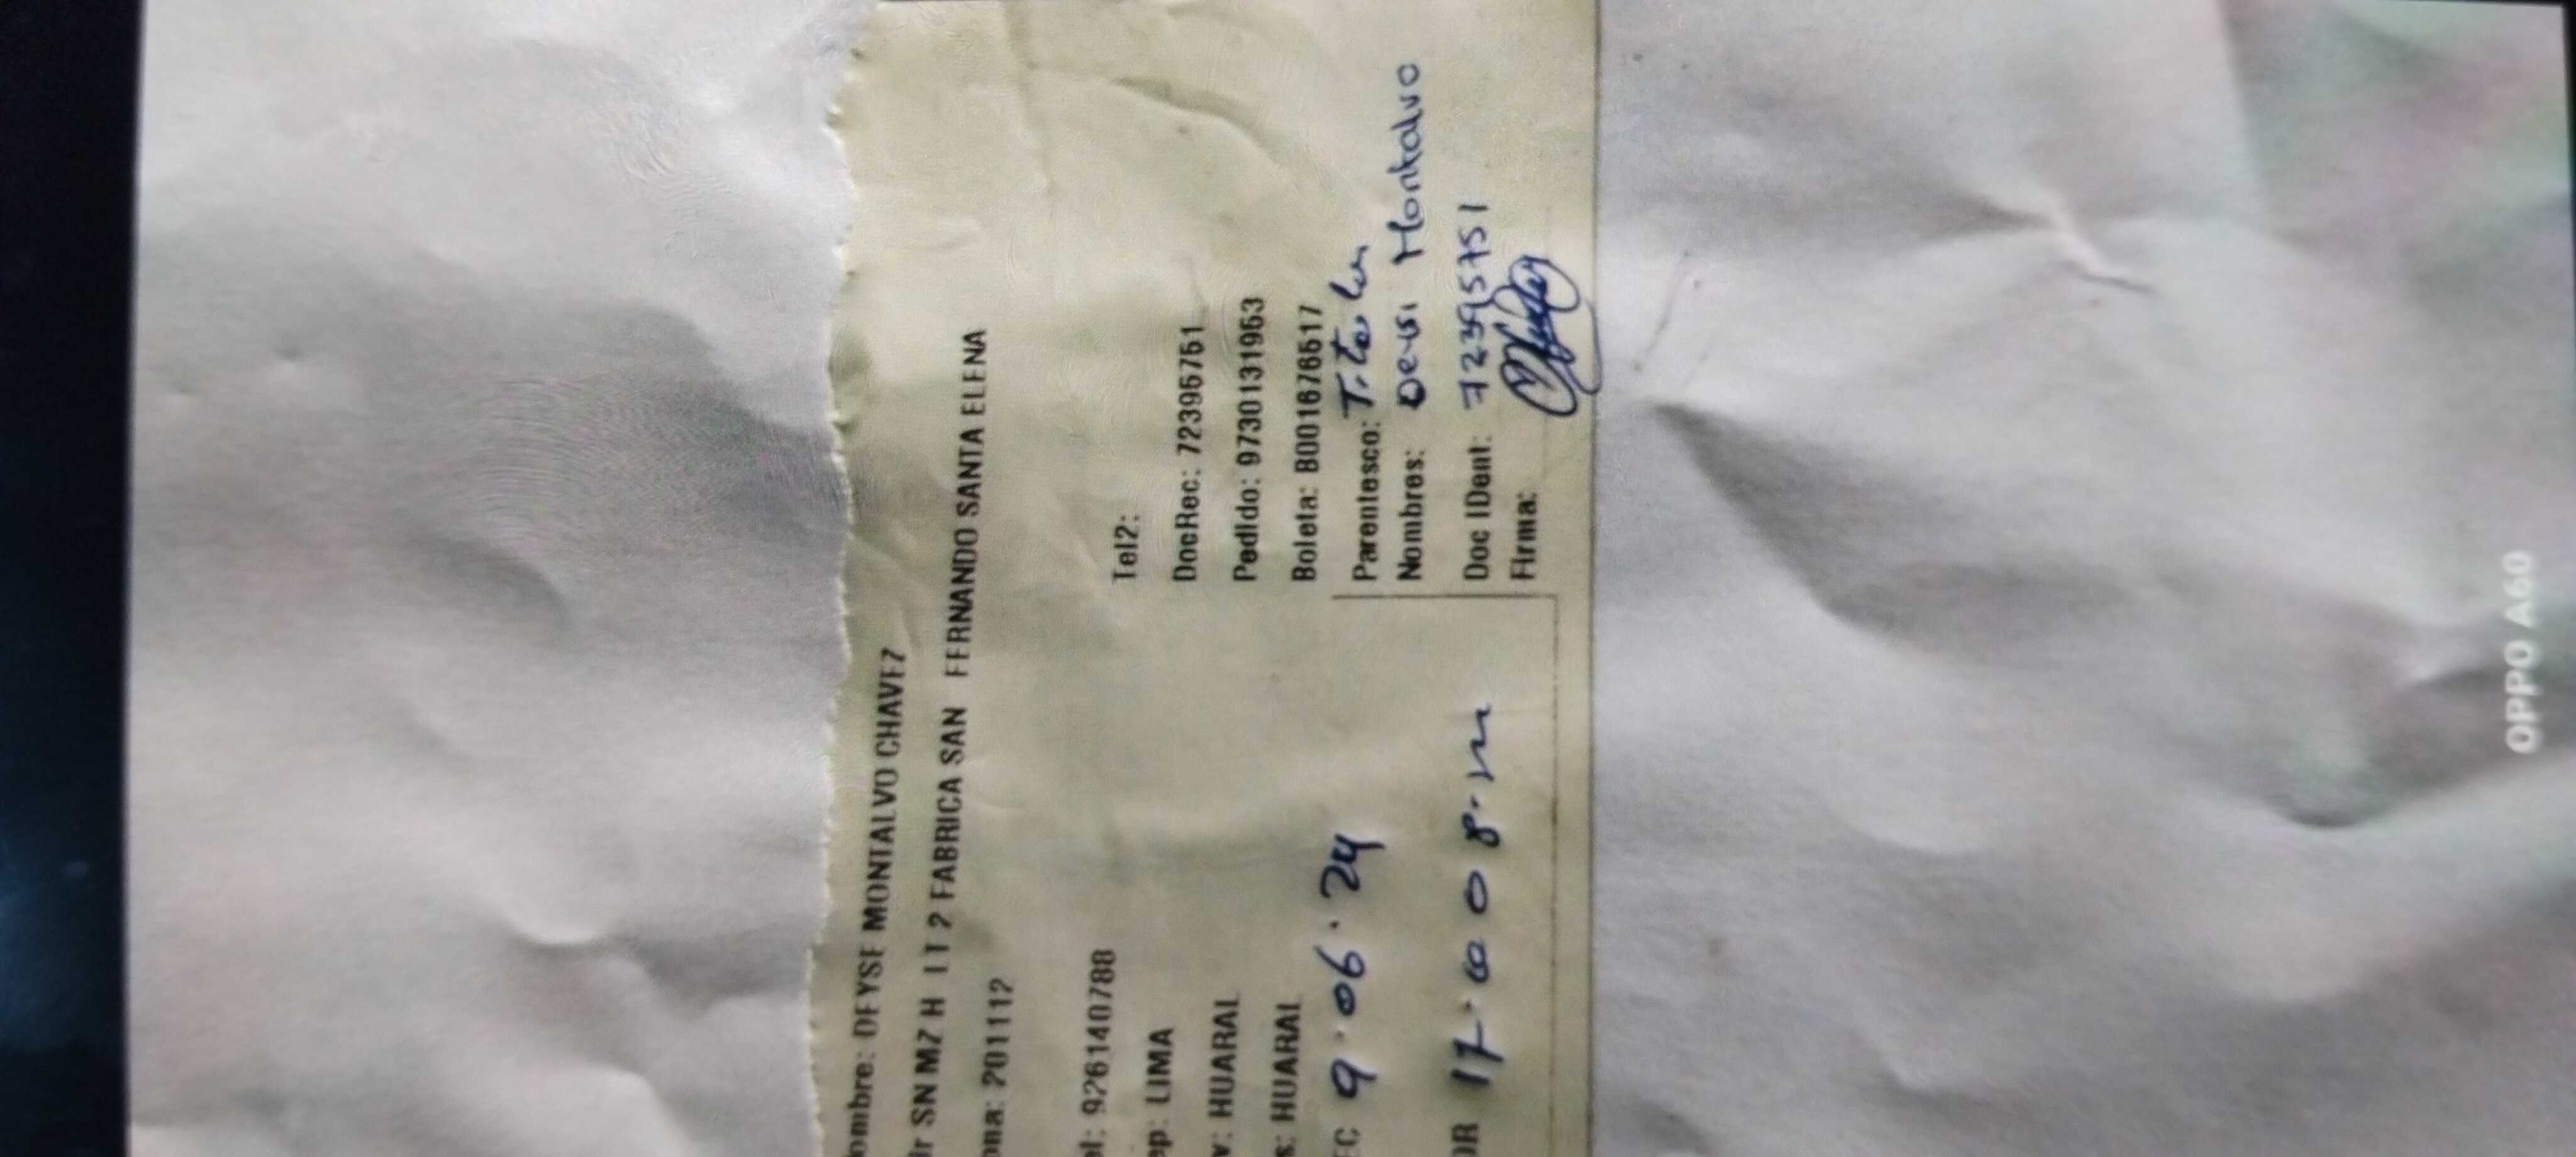 ombre: DEYSE MONTALVO CHAVEZ
Ir SN MZ H LT 2 FABRICA SAN FERNANDO SANTA ELENA
ona: 201112
el: 926140788
Tel2:
ep: LIMA
DocRec: 72395751
v: HUARAL
Pedido: 97301131963
s: HUARAL
Boleta: B001676617
EC 9.06.24
Parentesco: Titular
Nombres: Deysi Montalvo
OR 17:00
Doc IDent: 72395751
Firma:
OPPO A60